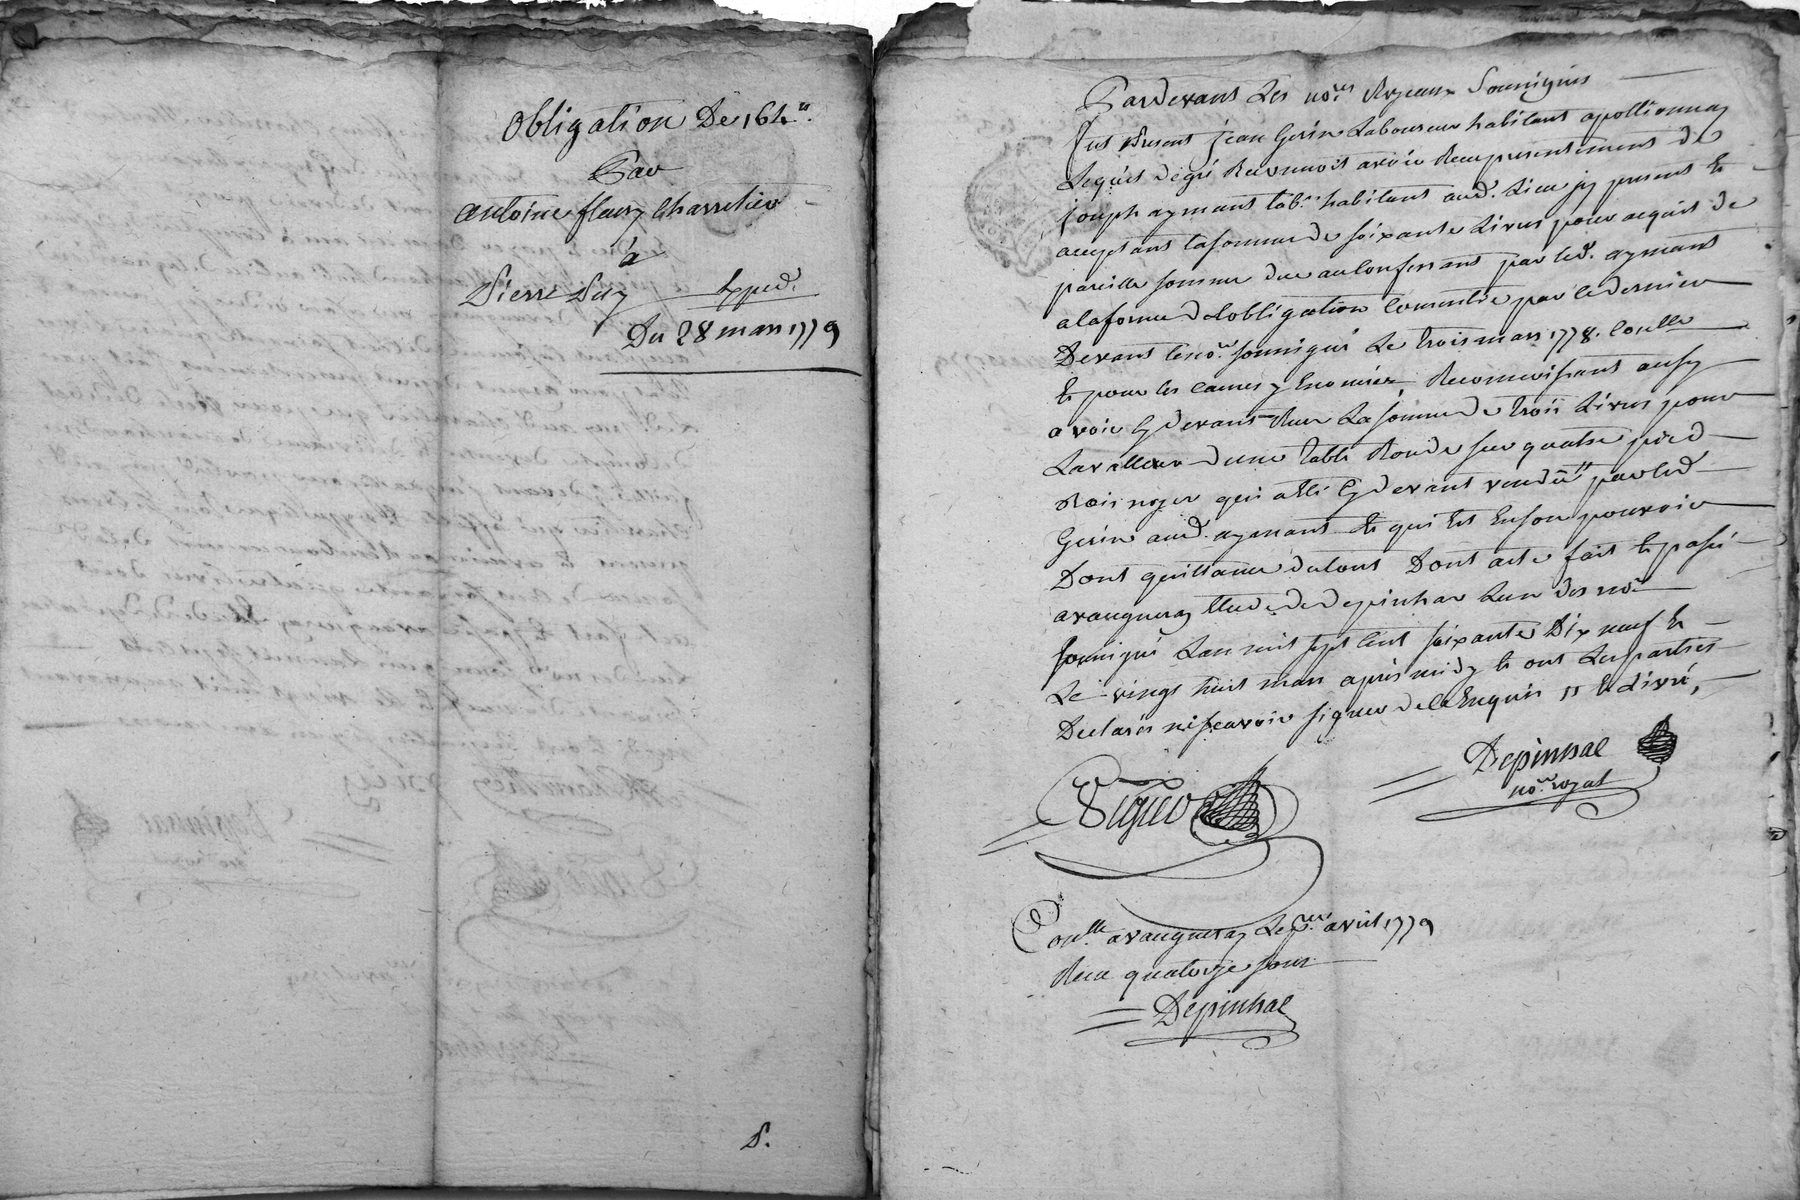 Obligation De 164.ᵗᵗ
Par
antoine fleury Charretier
à
Pierre Puy Exped.
Du 28 mars 1779
Pardevant Les no.ʳᵉˢ Royeaux Soussignés
fut present jean Gerin Laboureur habitant apollionnay
Lequel degré Reconnoit avoir Reçu presentement de
joseph aymant lab.ʳ habitant aud. Lieu jcy present et
acceptant la somme de soixante Livres pour acquit de
pareille somme due au Confessant par led. aymant
a la forme de l'obligation Consentie par ce dernier
Devant le no.ʳᵉ soussigné Le trois mars 1778. Conllé
et pour les causes y Enoncées, Reconnoissant aussy
avoir Cy devant Reçu La somme de trois Livres pour
La valleur d'une table Ronde sur quatre pied
Bois noyer qui a Eté Cy devant vendüe par led.
Gerin aud. aymant et qui Est En son pouvoir
Dont quittance du tout Dont acte fait et passé
avaugneray Etude de depinhac L'un des no.ʳᵉˢ
soussigné L'an mil sept Cent soixante Dix neuf et
Le vingt huit mars après midy et ont Les parties
Declarés ne sçavoir signer de ce Enquis Et Livré,
Depinhac
no.ʳᵉ royal
Viguer
Con.llé avaugneray Le p.ʳ avril 1779
Reçu quatorze sous
Depinhac
S.